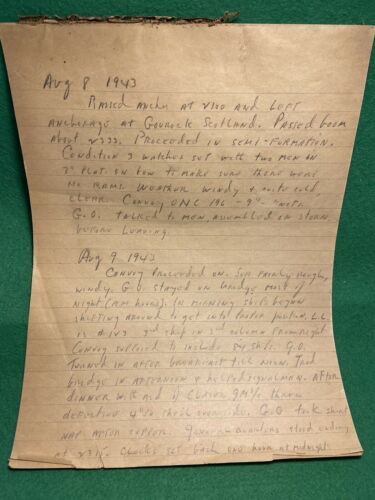 Aug 8 1943
Raised anchor at 2100 and left
anchorage at Gourock Scotland. Passed boom
about 2333. Proceeded in semi-formation.
Condition 3 watches set with two men on
3" on bow to make sure there were
no rams. Weather windy & quite cold,
clear. Convoy ONC 196 - 9
G.O. talked to men, assembled on
before leaving.
Aug 9 1943
Convoy proceeded on. Sea fairly rough,
windy. G.O. stayed on bridge most of
night (A.M. hours). In morning ships began
shifting around to get into proper
is # 143 3rd ship in 3rd column from right
Convoy supposed to include 84 ships. G.O.
turned in after breakfast till noon. Then
bridge in afternoon & helped signalman. After
dinner with aid of
4"/50 shell G.O. took short
nap after supper. General Quarters stood ending
at 2315. Clocks set back one hour at midnight.